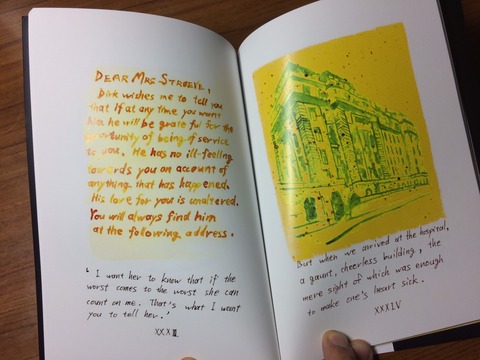 DEAR MRS STROEVE,
Dirk wishes me to tell you
that if at any time you want
him he will be grateful for the
opportunity of being of service
to you. He has no ill-feeling
towards you on account of
anything that has happened.
His love for you is unaltered.
You will always find him
at the following address.
'I want her to know that if the
worst comes to the worst she can
count on me. That's what I want
you to tell her.'
XXXIII
But when we arrived at the hospital,
a gaunt, cheerless building, the
mere sight of which was enough
to make one's heart sick.
XXXIV